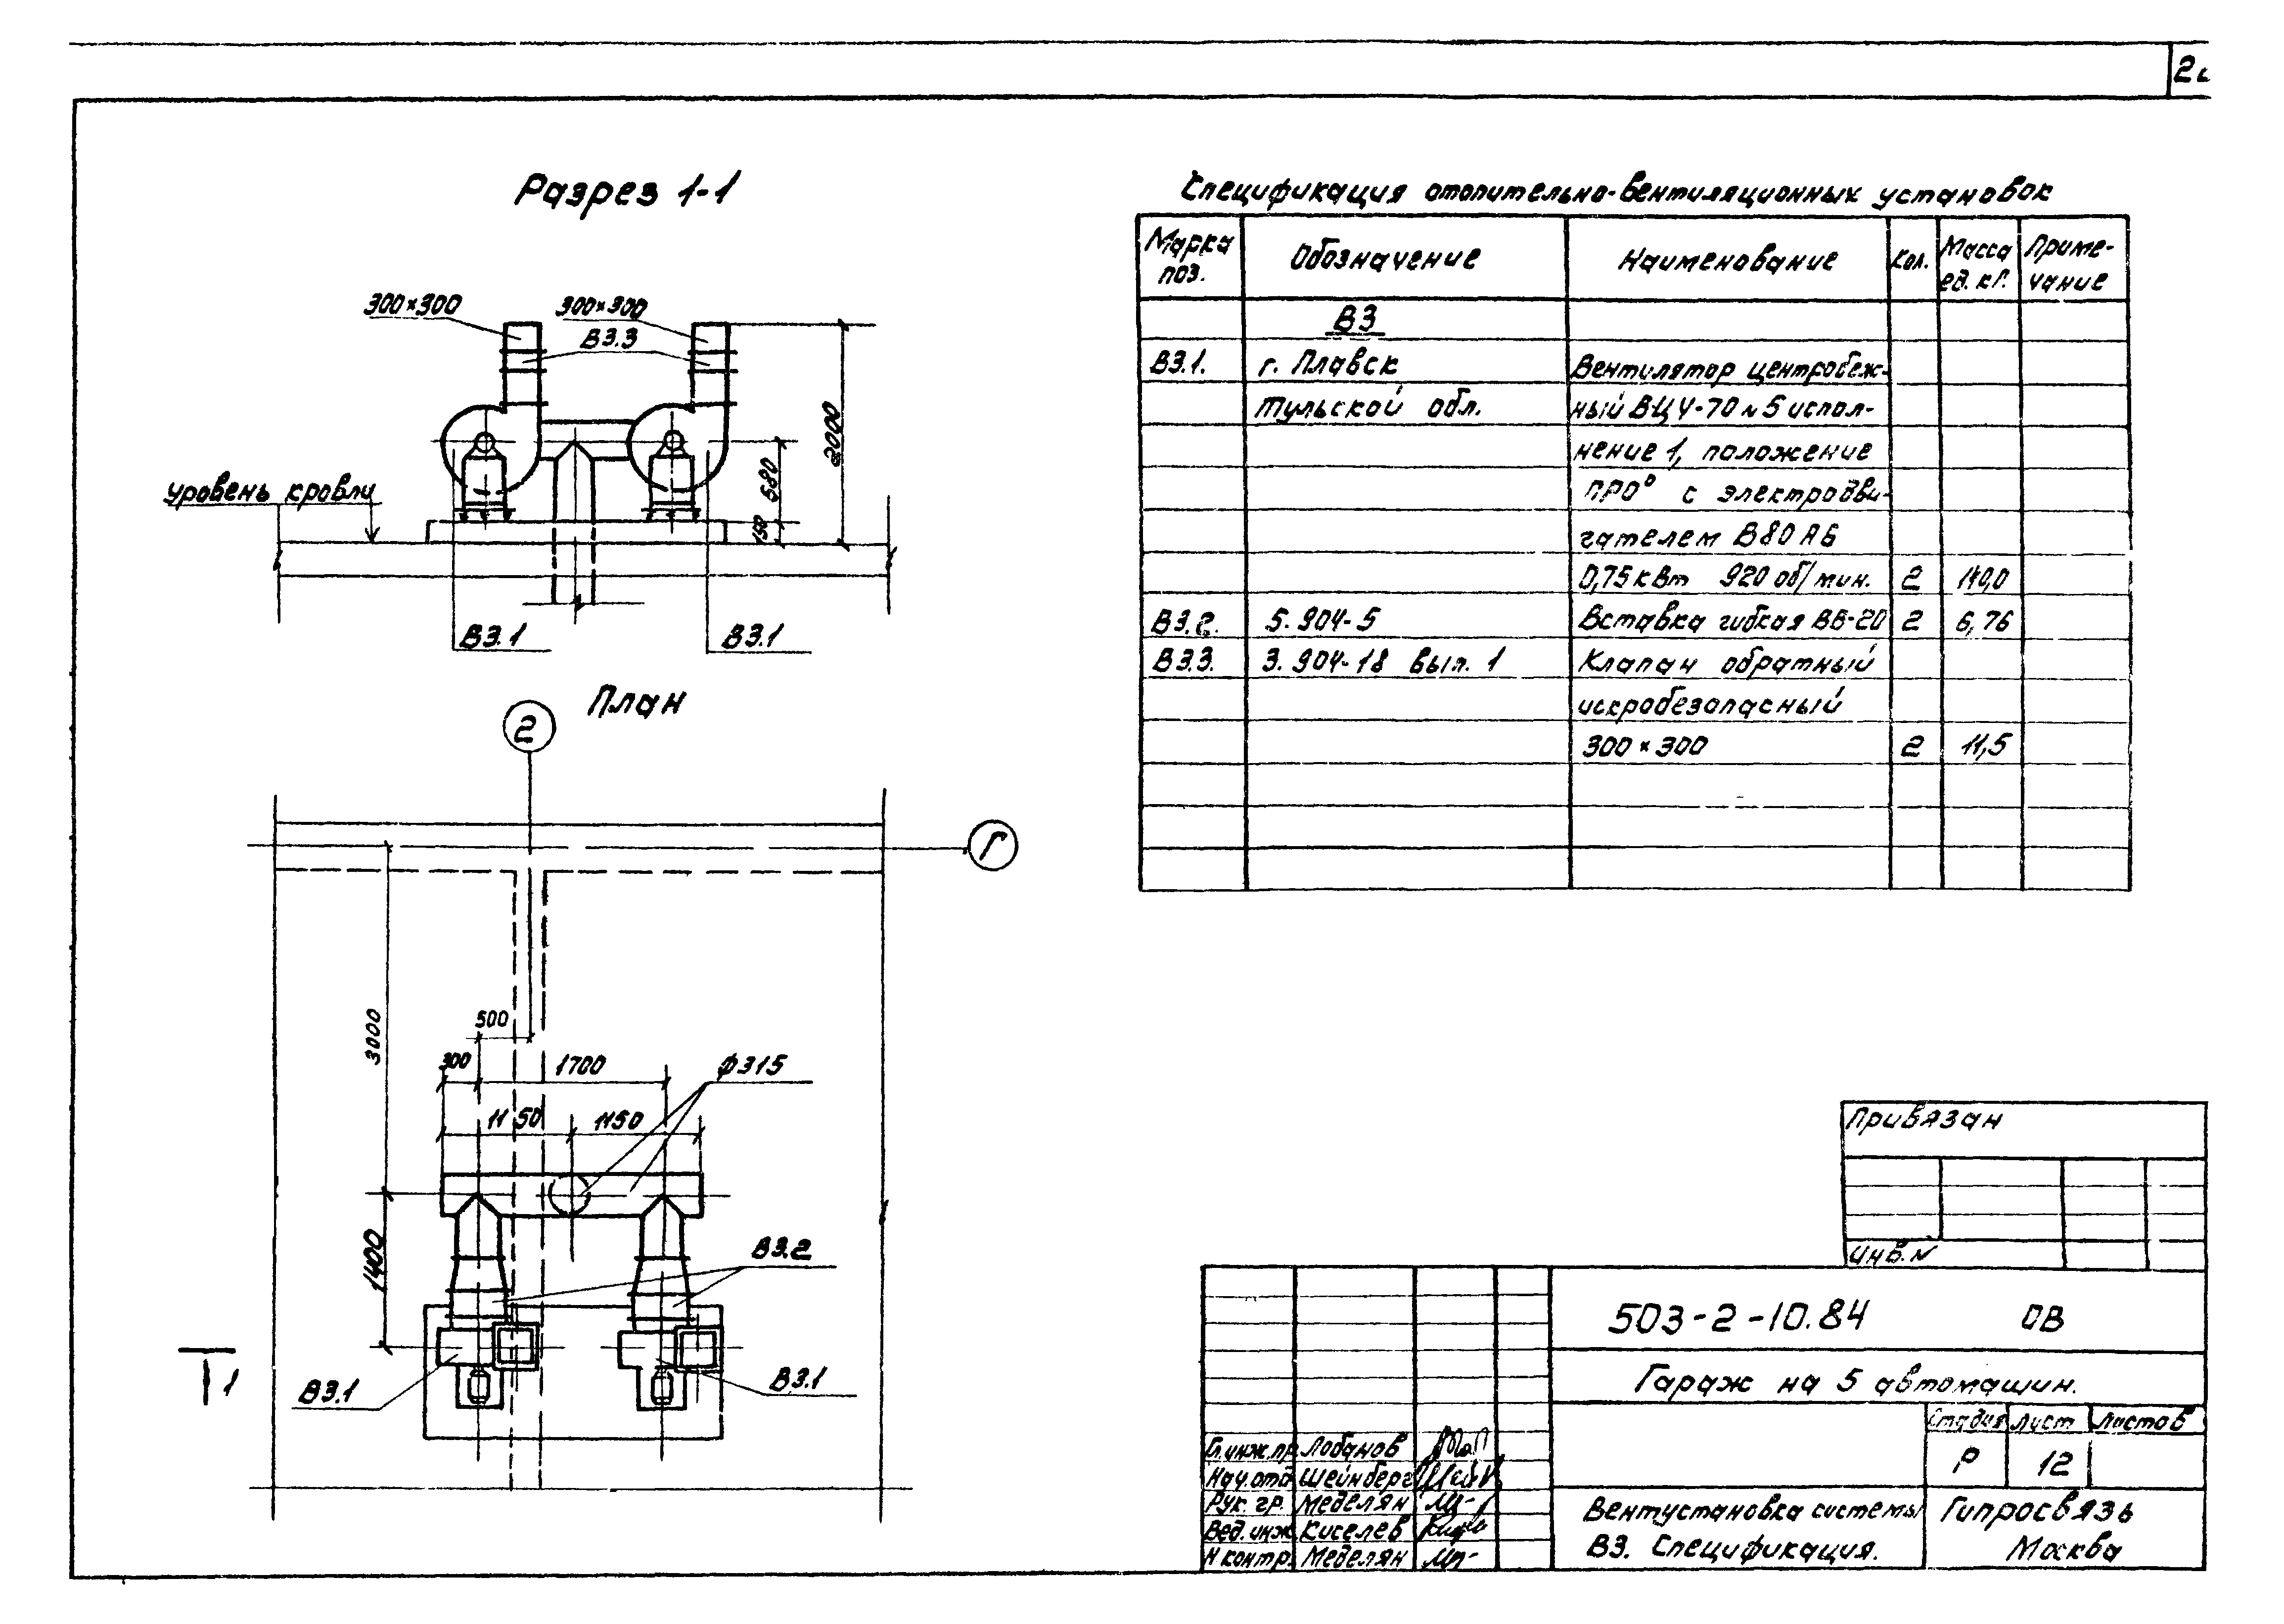 Разрез 1-1
300×300
300×300
В3.3
2000
680
150
уровень кровли
В3.1
В3.1
План
2
Г
3000
500
300
1700
ф315
1150
1150
1400
В3.2
1
В3.1
В3.1
Спецификация отопительно-вентиляционных установок
Марка поз.
Обозначение
Наименование
Кол.
Масса ед. кг.
Приме-чание
В3
В3.1. г. Плавск Вентилятор центробеж-
Тульской обл. ный ВЦ4-70 №5 испол-
нение 1, положение
ПР0° с электродви-
гателем В80А6
0,75 кВт 920 об/мин. 2 110,0
В3.2. 5.904-5 Вставка гибкая ВВ-20 2 6,76
В3.3. 3.904-18 вып. 1 Клапан обратный
искробезопасный
300×300 2 11,5
Привязан
Инв. №
503-2-10.84 ОВ
Гараж на 5 автомашин.
Стадия Лист Листов
Р 12
Гл.инж.пр. Лобанов
Нач.отд. Шейнберг
Рук. гр. Меделян
Вед.инж. Киселев
Н контр. Меделян
Вентустановка системы
В3. Спецификация.
Гипросвязь
Москва